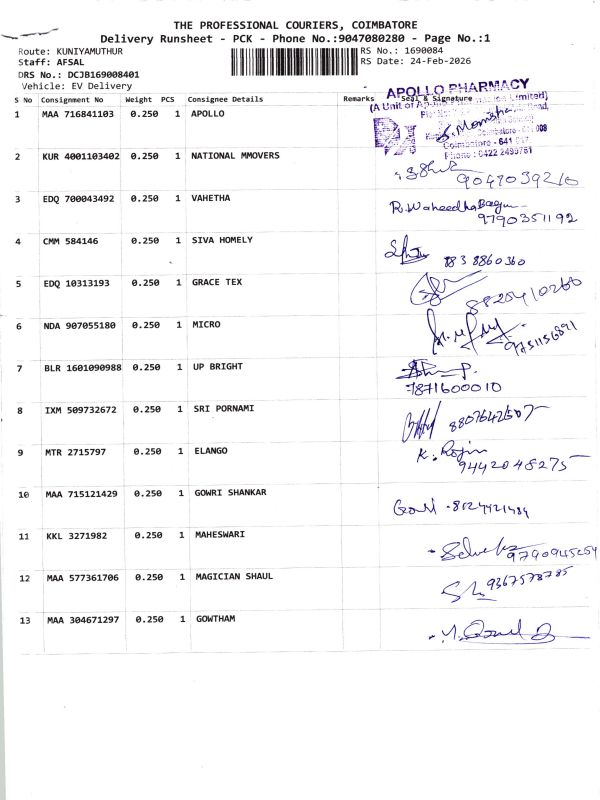 THE PROFESSIONAL COURIERS, COIMBATORE
Delivery Runsheet - PCK - Phone No.:9047080280 - Page No.:1
Route: KUNIYAMUTHUR RS No.: 1690084
Staff: AFSAL RS Date: 24-Feb-2026
DRS No.: DCJB169008401
Vehicle: EV Delivery
S No Consignment No Weight PCS Consignee Details Remarks Seal & Signature
APOLLO PHARMACY
1 MAA 716841103 0.250 1 APOLLO
Coimbatore - 641 008
Phone : 0422 2499761
2 KUR 4001103402 0.250 1 NATIONAL MMOVERS
9047039210
3 EDQ 700043492 0.250 1 VAHETHA R. Waheedha Begum
9790351192
4 CMM 584146 0.250 1 SIVA HOMELY
7838860360
5 EDQ 10313193 0.250 1 GRACE TEX
8825410260
6 NDA 907055180 0.250 1 MICRO
9751156891
7 BLR 1601090988 0.250 1 UP BRIGHT
7871600010
8 IXM 509732672 0.250 1 SRI PORNAMI
8807642507
9 MTR 2715797 0.250 1 ELANGO K. Rojin
9442048275
10 MAA 715121429 0.250 1 GOWRI SHANKAR
11 KKL 3271982 0.250 1 MAHESWARI
9790945254
12 MAA 577361706 0.250 1 MAGICIAN SHAUL
9367578785
13 MAA 304671297 0.250 1 GOWTHAM